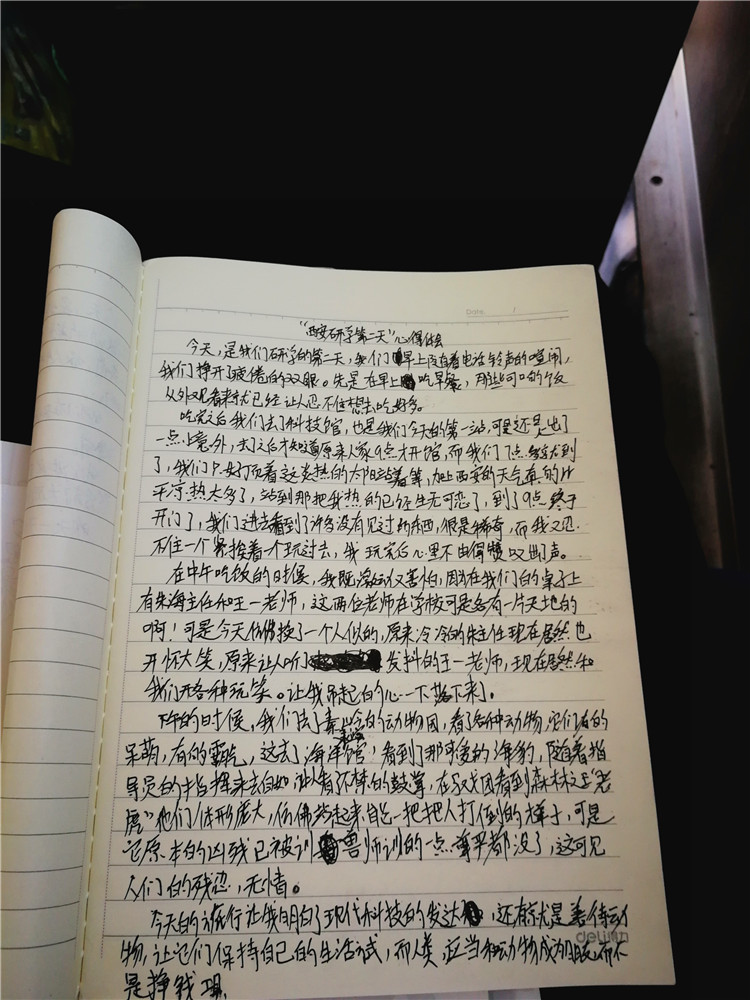 Date. /
"西安研学第二天"心得体会
今天,是我们研学的第二天,我们早上随着电话铃声的喧闹,
我们挣开了疲倦的双眼。先是在早上吃早餐,那些可口的饭
从外观看来就已经让人忍不住想去吃好多。
吃完之后我们去了科技馆,也是我们今天的第一站,可是还是出了
一点小意外,去了之后才知道原来人家9点才开馆,而我们7点多就到
了,我们只好顶着这炎热的太阳站着等,加上西安的天气真的比
平凉热太多了,站到那把我热的已经生无可恋了,到了9点终于
开门了,我们进去看到了许多没有见过的东西,很是稀奇,而我又忍
不住一个紧挨着一个玩过去,我玩完后心里不由得赞叹几声。
在中午吃饭的时候,我既激动又害怕,因为在我们的桌子上
有朱海主任和王一老师,这两位老师在学校可是各有一片天地的
啊!可是今天仿佛换了一个人似的,原来冷冷的朱主任现在居然也
开怀大笑,原来让人听了发抖的王一老师,现在居然和
我们开各种玩笑。让我吊起的心一下落下来了。
下午的时候,我们去了秦岭的动物园,看了各种动物,它们有的
呆萌,有的霸气,这去了海洋馆,看到了那可爱的海豹,随着指
导员的指挥来去自如,让人看不禁的鼓掌,在马戏团看到森林之王"老
虎"他们体形庞大,仿佛站起来自己一把把人打倒的样子,可是
它原本的凶残已被训兽师训的一点都没了,这可见
人们的残忍,无情。
今天的旅行让我明白了现代科技的发达,还有就是善待动
物,让它们保持自己的生活方式,而人类,应当和动物成为朋友而不
是挣钱
deli